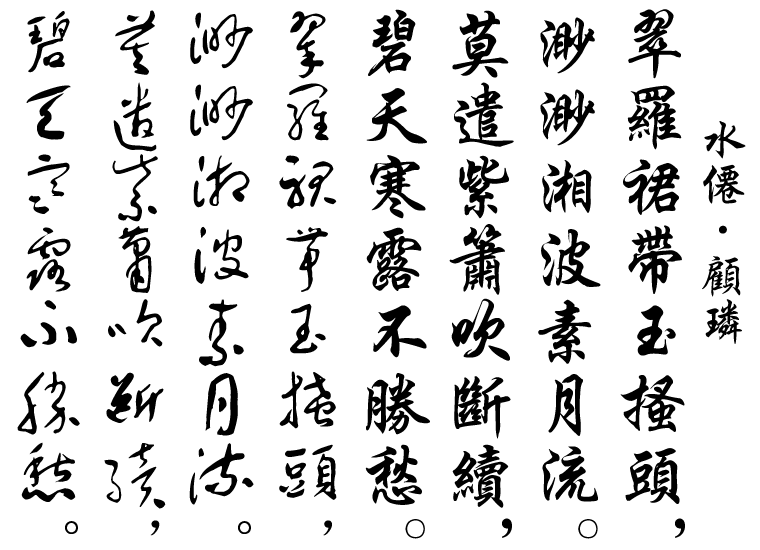 水僊·顧璘
翠羅裙帶玉搔頭，
渺渺湘波素月流。
莫遣紫簫吹斷續，
碧天寒露不勝愁。
翠羅裙帶玉搔頭，
渺渺湘波素月流。
莫遣紫簫吹斷續，
碧天寒露不勝愁。